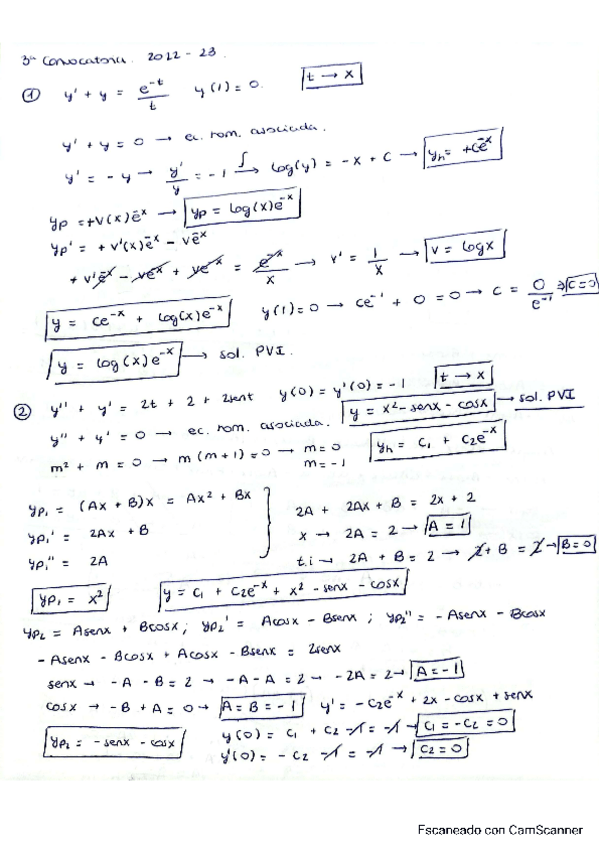 3ª Convocatoria. 2022 - 23.
① y' + y = e^{-t}/t   y(1) = 0.   t → x
y' + y = 0 → ec. hom. asociada.
y' = -y → y'/y = -1 →∫ log(y) = -x + C → yh = +Ce^{-x}
yp = +V(x)e^{-x} → yp = log(x)e^{-x}
yp' = +v'(x)e^{-x} - ve^{-x}
+ v'e^{-x} - ve^{-x} + ve^{-x} = e^{-x}/x → v' = 1/x → v = logx
y = Ce^{-x} + log(x)e^{-x}   y(1) = 0 → Ce^{-1} + 0 = 0 → C = 0/e^{-1} ⇒ C = 0
y = log(x)e^{-x} → sol. PVI.
② y'' + y' = 2t + 2 + 2sent   y(0) = y'(0) = -1   t → x
y'' + y' = 0 → ec. hom. asociada.   y = x² - senx - cosx → sol. PVI
m² + m = 0 → m(m+1) = 0 → m = 0   yh = C1 + C2e^{-x}
m = -1
yp1 = (Ax + B)x = Ax² + Bx   2A + 2Ax + B = 2x + 2
yp1' = 2Ax + B   x → 2A = 2 → A = 1
yp1'' = 2A   t.i → 2A + B = 2 → 2 + B = 2 → B = 0
yp1 = x²   y = C1 + C2e^{-x} + x² - senx - cosx
yp2 = Asenx + Bcosx; yp2' = Acosx - Bsenx; yp2'' = -Asenx - Bcosx
-Asenx - Bcosx + Acosx - Bsenx = 2senx
senx → -A - B = 2 → -A - A = 2 → -2A = 2 → A = -1
cosx → -B + A = 0 → A = B = -1   y' = -C2e^{-x} + 2x - cosx + senx
yp2 = -senx - cosx   y(0) = C1 + C2 - 1 = -1 → C1 = -C2 = 0
y'(0) = -C2 - 1 = -1 → C2 = 0
Escaneado con CamScanner